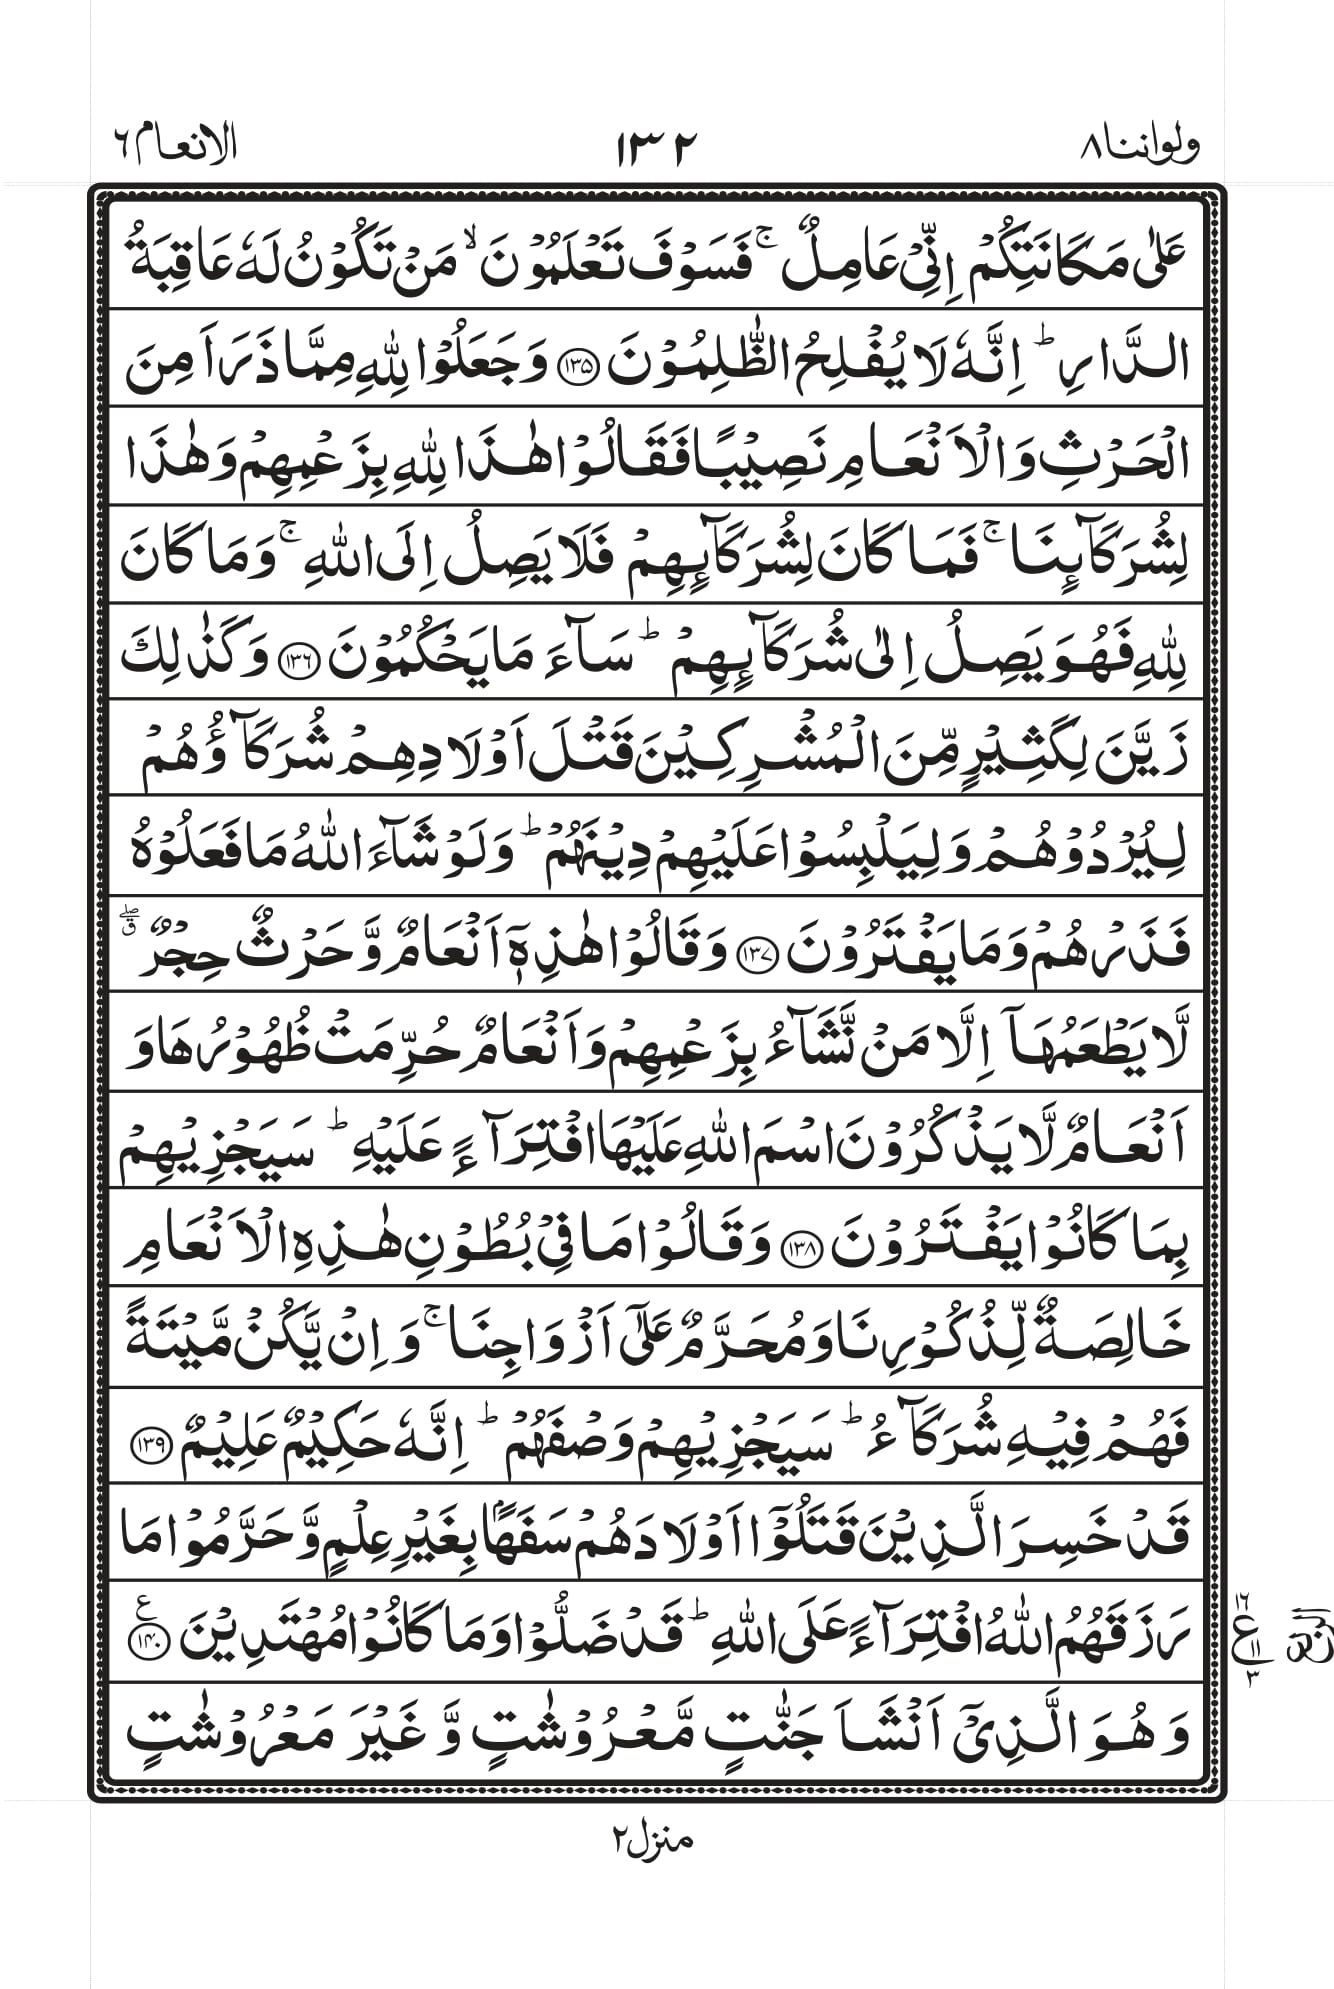 ولواننا ٨
١٣٢
الانعام ٦
عَلٰى مَكَانَتِكُمۡ اِنِّىۡ عَامِلٌ‌ ۚ فَسَوۡفَ تَعۡلَمُوۡنَ ۙ مَنۡ تَكُوۡنُ لَهٗ عَاقِبَةُ
الدَّارِ‌ ؕ اِنَّهٗ لَا يُفۡلِحُ الظّٰلِمُوۡنَ ﴿۱۳۵﴾ وَجَعَلُوۡا لِلّٰهِ مِمَّا ذَرَاَ مِنَ
الۡحَرۡثِ وَالۡاَنۡعَامِ نَصِيۡبًا فَقَالُوۡا هٰذَا لِلّٰهِ بِزَعۡمِهِمۡ وَهٰذَا
لِشُرَكَآئِنَا‌ ۚ فَمَا كَانَ لِشُرَكَآئِهِمۡ فَلَا يَصِلُ اِلَى اللّٰهِ‌ ۚ وَمَا كَانَ
لِلّٰهِ فَهُوَ يَصِلُ اِلٰى شُرَكَآئِهِمۡ‌ ؕ سَآءَ مَا يَحۡكُمُوۡنَ ﴿۱۳۶﴾ وَكَذٰلِكَ
زَيَّنَ لِكَثِيۡرٍ مِّنَ الۡمُشۡرِكِيۡنَ قَتۡلَ اَوۡلَادِهِمۡ شُرَكَآؤُهُمۡ
لِيُرۡدُوۡهُمۡ وَلِيَلۡبِسُوۡا عَلَيۡهِمۡ دِيۡنَهُمۡ‌ ؕ وَلَوۡ شَآءَ اللّٰهُ مَا فَعَلُوۡهُ
فَذَرۡهُمۡ وَمَا يَفۡتَرُوۡنَ ﴿۱۳۷﴾ وَقَالُوۡا هٰذِهٖۤ اَنۡعَامٌ وَّحَرۡثٌ حِجۡرٌ ۖق
لَّا يَطۡعَمُهَاۤ اِلَّا مَنۡ نَّشَآءُ بِزَعۡمِهِمۡ وَاَنۡعَامٌ حُرِّمَتۡ ظُهُوۡرُهَا وَ
اَنۡعَامٌ لَّا يَذۡكُرُوۡنَ اسۡمَ اللّٰهِ عَلَيۡهَا افۡتِرَآءً عَلَيۡهِ‌ ؕ سَيَجۡزِيۡهِمۡ
بِمَا كَانُوۡا يَفۡتَرُوۡنَ ﴿۱۳۸﴾ وَقَالُوۡا مَا فِىۡ بُطُوۡنِ هٰذِهِ الۡاَنۡعَامِ
خَالِصَةٌ لِّذُكُوۡرِنَا وَمُحَرَّمٌ عَلٰٓى اَزۡوَاجِنَا‌ ۚ وَاِنۡ يَّكُنۡ مَّيۡتَةً
فَهُمۡ فِيۡهِ شُرَكَآءُ‌ ؕ سَيَجۡزِيۡهِمۡ وَصۡفَهُمۡ‌ ؕ اِنَّهٗ حَكِيۡمٌ عَلِيۡمٌ ﴿۱۳۹﴾
قَدۡ خَسِرَ الَّذِيۡنَ قَتَلُوۡۤا اَوۡلَادَهُمۡ سَفَهًۢا بِغَيۡرِ عِلۡمٍ وَّحَرَّمُوۡا مَا
رَزَقَهُمُ اللّٰهُ افۡتِرَآءً عَلَى اللّٰهِ‌ ؕ قَدۡ ضَلُّوۡا وَمَا كَانُوۡا مُهۡتَدِيۡنَ ﴿۱۴۰﴾ ع
ع ١٦ ١١ ٣
وَهُوَ الَّذِىۡۤ اَنۡشَاَ جَنّٰتٍ مَّعۡرُوۡشٰتٍ وَّغَيۡرَ مَعۡرُوۡشٰتٍ
منزل ٢